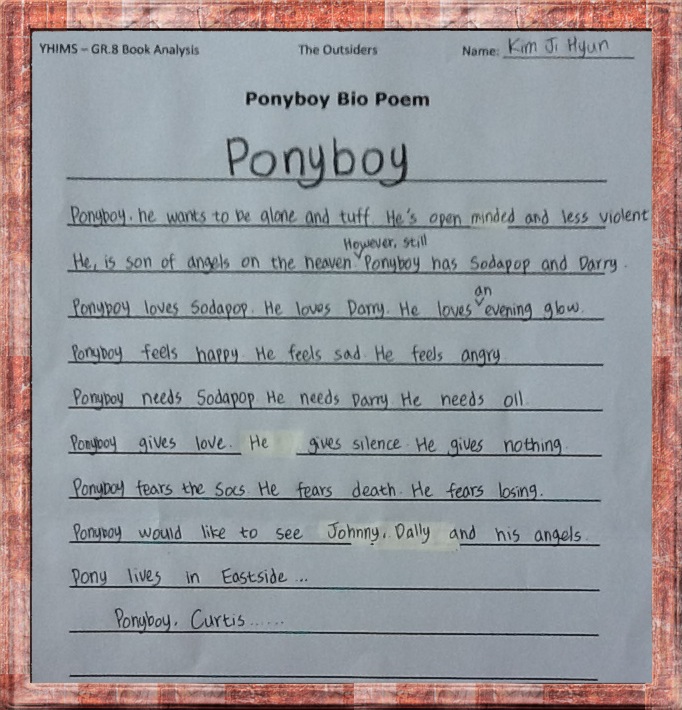 YHIMS – GR.8 Book Analysis The Outsiders Name: Kim Ji Hyun
Ponyboy Bio Poem
Ponyboy
Ponyboy. he wants to be alone and tuff. He's open minded and less violent
However, still
He, is son of angels on the heaven Ponyboy has Sodapop and Darry.
an
Ponyboy loves Sodapop. He loves Darry. He loves evening glow.
Ponyboy feels happy. He feels sad. He feels angry
Ponyboy needs Sodapop He needs Darry He needs oil.
Ponyboy gives love. He gives silence. He gives nothing.
Ponyboy fears the Socs. He fears death. He fears losing.
Ponyboy would like to see Johnny, Dally and his angels.
Pony lives in Eastside ...
Ponyboy. Curtis ......